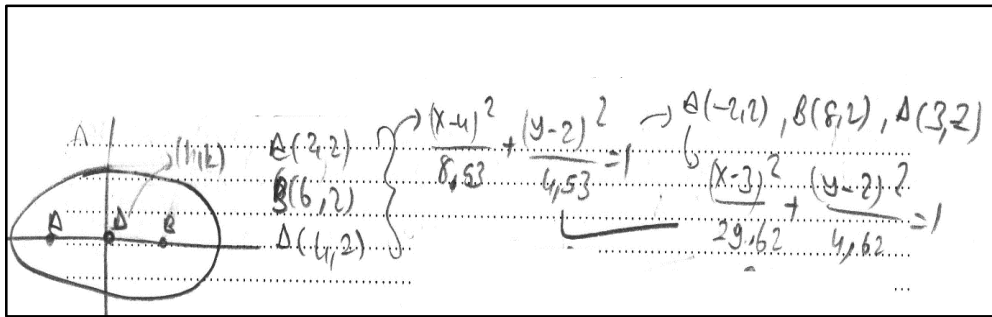 (h,k)
A Δ B
A(2,2)
B(6,2)
Δ(4,2)
(x-4)²/8,53 + (y-2)²/4,53 = 1
→ A(-2,2), B(8,2), Δ(3,2)
(x-3)²/29,62 + (y-2)²/4,62 = 1